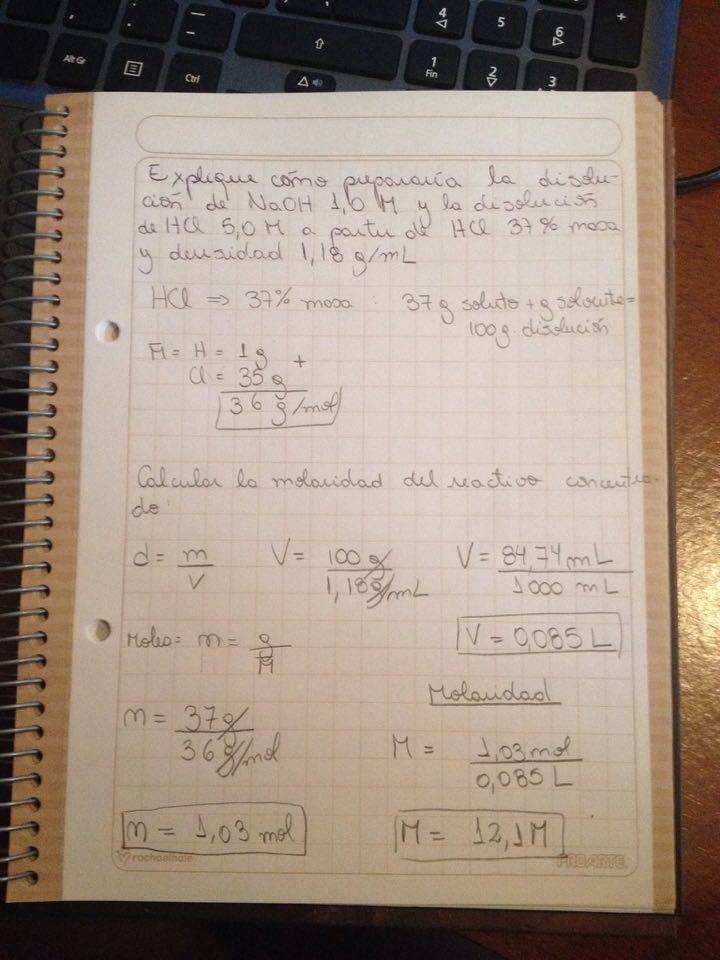 4
5
6
+
Alt Gr
Ctrl
1
Fin
2
3
Explique cómo prepararía la disolu-
ción de NaOH 1,0 M y la disolución
de HCl 5,0 M a partir de HCl 37% masa
y densidad 1,18 g/mL
HCl => 37% masa : 37g soluto + g solvente =
100g disolución
M = H = 1g +
Cl = 35 g
36 g/mol
Calcular la molaridad del reactivo concentra-
do:
d = m/V V = 100 g / 1,18 g/mL V = 84,74 mL / 1000 mL
V = 0,085 L
Moles = n = g/M
Molaridad
n = 37g / 36 g/mol M = 1,03 mol / 0,085 L
n = 1,03 mol M = 12,1M
rachaelhale PROARTE